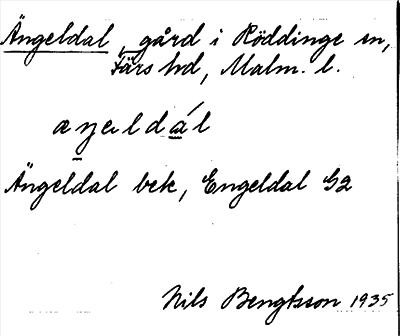 Ängeldal, gård i Röddinge sn,
Färs hd, Malm. l.
Ängeldal bek, Engeldal G2
Nils Bengtsson 1935